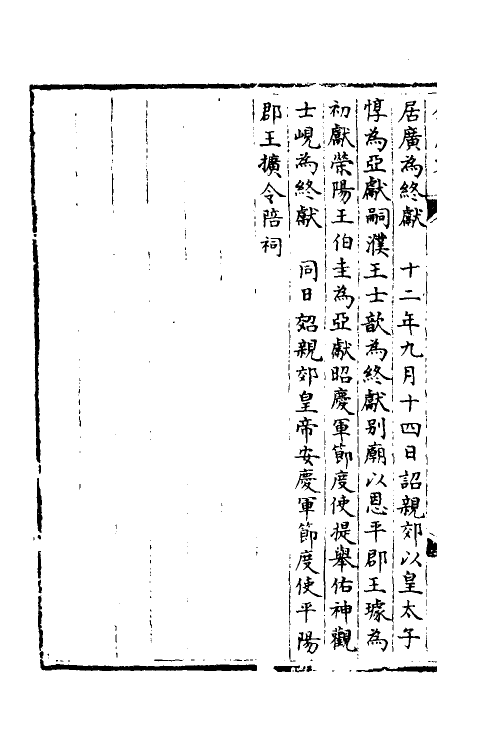 居廣為終獻　十二年九月十四日詔親郊以皇太子
惇為亞獻嗣濮王士歆為終獻別廟以恩平郡王璩為
初獻榮陽王伯圭為亞獻昭慶軍節度使提舉佑神觀
士峴為終獻　同日詔親郊皇帝安慶軍節度使平陽
郡王擴令陪祠